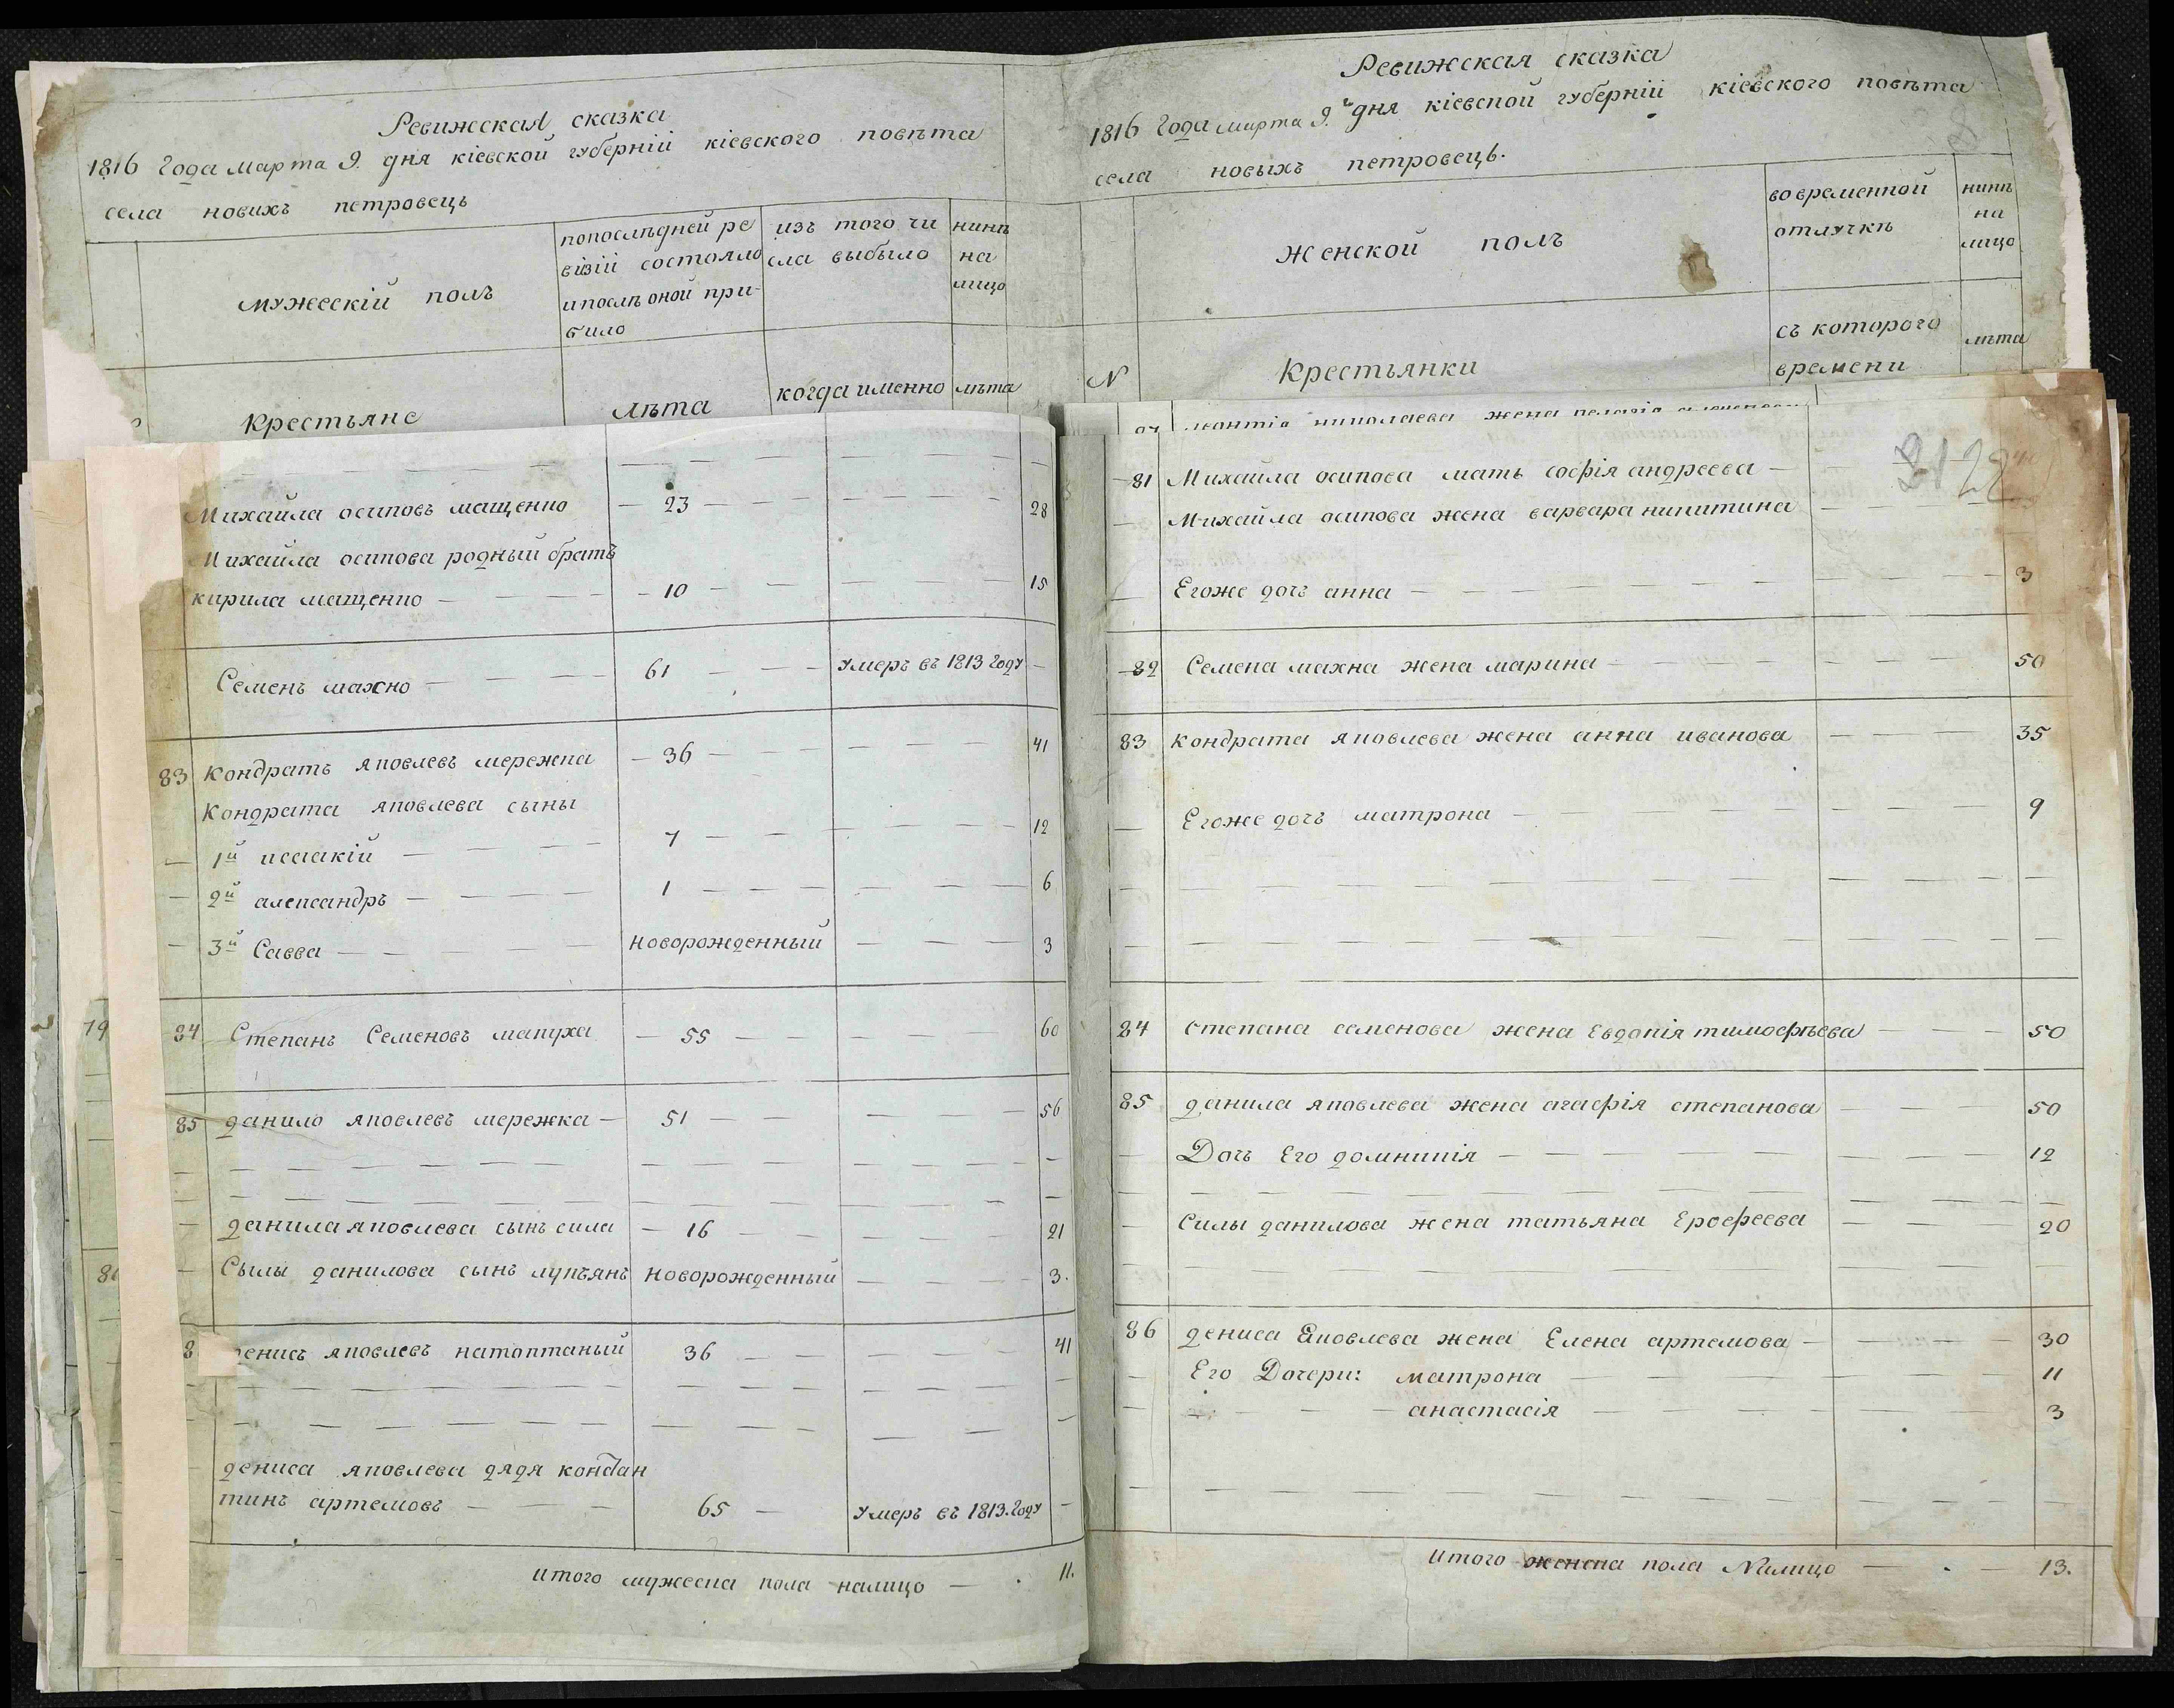 Ревижская сказка
1816 Года марта 9. дня кіевской губерніи кіевского повѣта
села новихъ петровець
мужескій полъ
попослѣдней ре
візіи состояло
ипослѣ оной при-
било
изъ того чи
сла выбыло
нинѣ
на
лицо
Крестьяне
лѣта
когда именно
лѣта
Ревижская сказка
1816 Года марта 9.го дня кіевской губерніи кіевского повѣта
села новыхъ петровець.
женской полъ
вовременной
отлучкѣ
нинѣ
на
лицо
N
Крестьянки
съ которого
времени
лѣта
Михайла осиповъ мащенко — 23 — 28
Михайла осипова родный братъ
кирила мащенко — 10 — 15
Семенъ махно — 61 — умеръ въ 1813 году —
83 Кондратъ яковлевъ мережка — 36 — 41
Кондрата яковлева сыны
1й исаакій — 7 — 12
2й александръ — 1 — 6
3й Савва — новорожденный — 3
84 Степанъ Семеновъ макуха — 55 — 60
85 данило яковлевъ мережка — 51 — 56
данила яковлева сынъ сила — 16 — 21
Сылы данилова сынъ лукъянъ новорожденный — 3.
8 денисъ яковлевъ натоптаный 36 — 41
дениса яковлева дядя констан
тинъ артемовъ — 65 — умеръ въ 1813. году —
итого мужеска пола налицо — 11.
79
8
леонтіа николаева жена пелагіа
3128
81 Михаила осипова мать софія андреева —
Михайла осипова жена варвара никитина —
Егоже дочъ анна — 3
82 Семена махна жена марина — 50
83 кондрата яковлева жена анна иванова — 35
Егоже дочъ матрона — 9
84 степана семенова жена Евдокія тимофѣева — 50
85 данила яковлева жена агафія степанова — 50
Дочъ Его домникія — 12
Силы данилова жена татьяна Ерофеева — 20
86 дениса Яковлева жена Елена артемова — 30
Его Дочери: матрона — 11
— анастасія — 3
итого женска пола Налицо — 13.